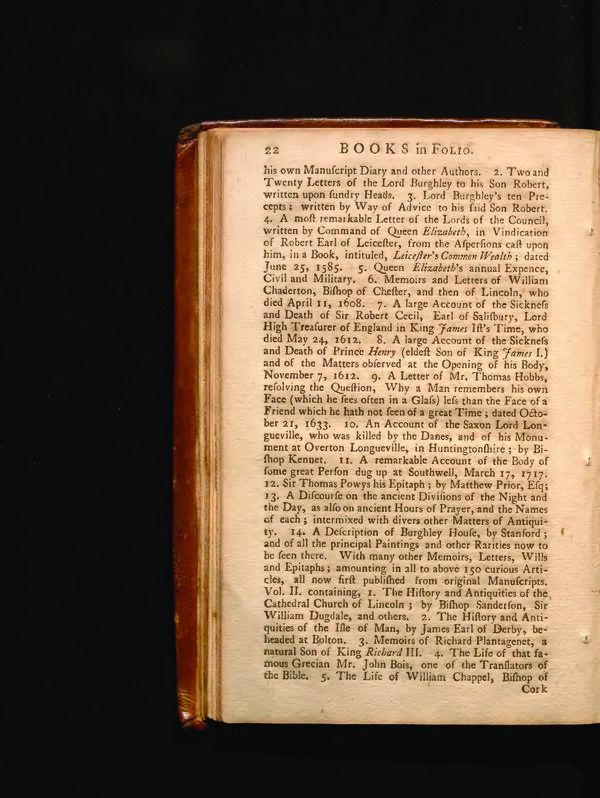 22 BOOKS in FOLIO.
his own Manuſcript Diary and other Authors. 2. Two and
Twenty Letters of the Lord Burghley to his Son Robert,
written upon ſundry Heads. 3. Lord Burghley's ten Pre-
cepts; written by Way of Advice to his ſaid Son Robert.
4. A moſt remarkable Letter of the Lords of the Council,
written by Command of Queen Elizabeth, in Vindication
of Robert Earl of Leiceſter, from the Aſperſions caſt upon
him, in a Book, intituled, Leiceſter's Common Wealth; dated
June 25, 1585. 5. Queen Elizabeth's annual Expence,
Civil and Military. 6. Memoirs and Letters of William
Chaderton, Biſhop of Cheſter, and then of Lincoln, who
died April 11, 1608. 7. A large Account of the Sickneſs
and Death of Sir Robert Cecil, Earl of Saliſbury, Lord
High Treaſurer of England in King James Iſt's Time, who
died May 24, 1612. 8. A large Account of the Sickneſs
and Death of Prince Henry (eldeſt Son of King James I.)
and of the Matters obſerved at the Opening of his Body,
November 7, 1612. 9. A Letter of Mr. Thomas Hobbs,
reſolving the Queſtion, Why a Man remembers his own
Face (which he ſees often in a Glaſs) leſs than the Face of a
Friend which he hath not ſeen of a great Time; dated Octo-
ber 21, 1633. 10. An Account of the Saxon Lord Lon-
gueville, who was killed by the Danes, and of his Monu-
ment at Overton Longueville, in Huntingtonſhire; by Bi-
ſhop Kennet. 11. A remarkable Account of the Body of
ſome great Perſon dug up at Southwell, March 17, 1717.
12. Sir Thomas Powys his Epitaph; by Matthew Prior, Eſq;
13. A Diſcourſe on the ancient Diviſions of the Night and
the Day, as alſo on ancient Hours of Prayer, and the Names
of each; intermixed with divers other Matters of Antiqui-
ty. 14. A Deſcription of Burghley Houſe, by Stanford;
and of all the principal Paintings and other Rarities now to
be ſeen there. With many other Memoirs, Letters, Wills
and Epitaphs; amounting in all to above 150 curious Arti-
cles, all now firſt publiſhed from original Manuſcripts.
Vol. II. containing, 1. The Hiſtory and Antiquities of the
Cathedral Church of Lincoln; by Biſhop Sanderſon, Sir
William Dugdale, and others. 2. The Hiſtory and Anti-
quities of the Iſle of Man, by James Earl of Derby, be-
headed at Bolton. 3. Memoirs of Richard Plantagenet, a
natural Son of King Richard III. 4. The Life of that fa-
mous Grecian Mr. John Bois, one of the Tranſlators of
the Bible. 5. The Life of William Chappel, Biſhop of
Cork